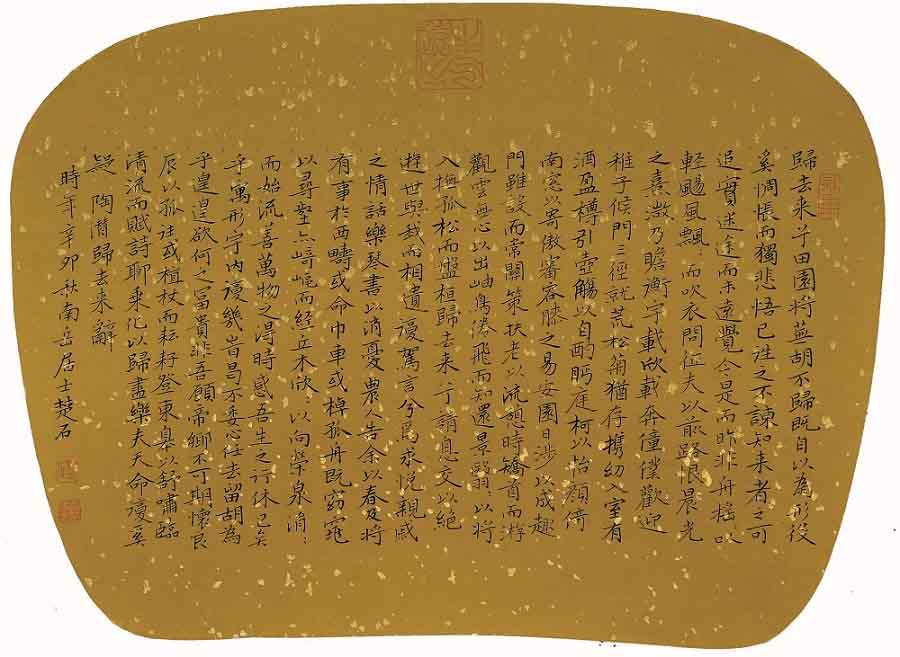 歸去来兮田園將蕪胡不歸既自以為形役
奚惆悵而獨悲悟已往之不諫知来者之可
追實迷途而未遠覺今是而昨非舟摇以
輕颺風飄而吹衣問征夫以前路恨晨光
之熹微乃瞻衡宇載欣載奔僮僕歡迎
稚子候門三徑就荒松菊猶存攜幼入室有
酒盈樽引壺觴以自酌眄庭柯以怡顏倚
南窓以寄傲審容膝之易安園日涉以成趣
門雖設而常關策扶老以流憩時矯首而游
觀雲無心以出岫鳥倦飛而知還景翳々以將
入撫孤松而盤桓歸去来兮請息交以絶
遊世與我而相遺復駕言兮焉求悅親戚
之情話樂琴書以消憂農人告余以春及將
有事於西疇或命巾車或棹孤舟既窈窕
以尋壑亦崎嶇而經丘木欣々以向榮泉涓々
而始流善萬物之得時感吾生之行休已矣
乎寓形宇内復幾時曷不委心任去留胡為
乎遑遑欲何之富貴非吾願帝鄉不可期懷良
辰以孤往或植杖而耘耔登東皋以舒嘯臨
清流而賦詩聊乘化以歸盡樂夫天命復奚
疑 陶潛歸去来辭
時年辛卯秋南岳居士楚石